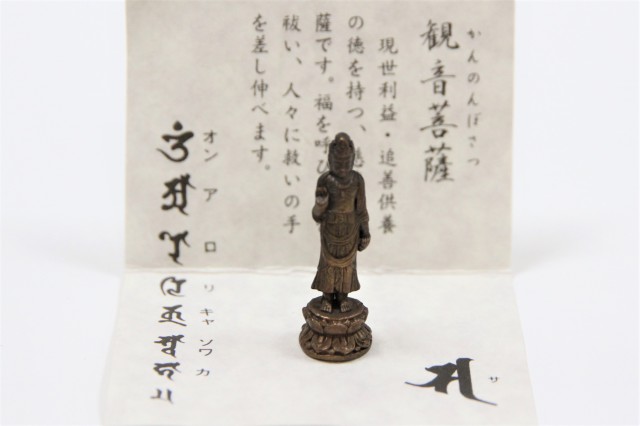 かんのんぼさつ
観音菩薩
現世利益・追善供養
の徳を持つ、
薩です。福を呼び
祓い、人々に救いの手
を差し伸べます。
オン ア ロ リ キャ ソワ カ
サ